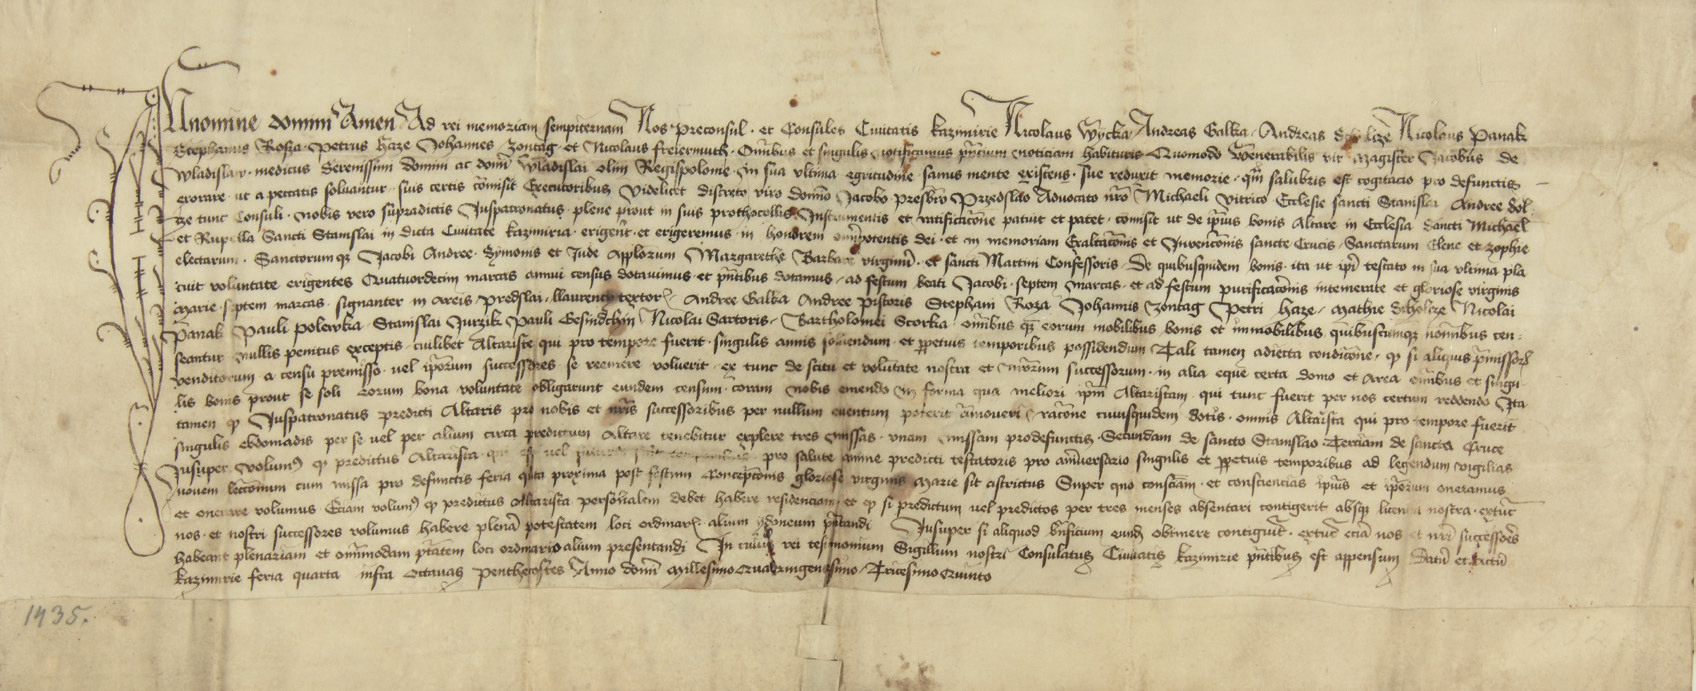 In nomine domini Amen Ad rei memoriam sempiternam Nos Preconsul et Consules Civitatis kazimirie Nicolaus Wycka Andreas Galka Andreas Nicolaus Panak
Stephanus Rosza Petrus Haze Johannes Zontag et Nicolaus freiermuth Omībus et singulis notificamus pn̄cium noticiam habituris Quomodo Venerabilis vir Magister Jacobus de
Wladislav medicus Serenissimi domini ac domī Wladislai olim Regis polonie in sua vltima egritudine sanus mente existens sue reduxit memorie qm̄ salubris est cogitacio pro defunctis
exorare ut a peccatis soluantur suis certis cōmisit Executoribus videlicet discreto viro domīo Jacobo presbr̄o Przedslao Aduocato nr̄o Michaeli vitrico Ecclesie sancti Stanislai Andree dol
ze tunc Consuli nobis vero supradictis Juspatronatus plene prout in suis prothocollis Instrumentis et ratificacōne patuit et patet comisit ut de ip̄ius bonis Altare in Ecclesia sancti Michael
et Rupella Sancti Stanislai in dicta Civitate kazimiria erigent et erigeremus in honorem omīpotentis dei et in memoriam Exaltacōnis et Invencōnis sancte Crucis Sanctarum Elene et zophie
electarum Sanctorumqꝫ Jacobi Andree Symonis et Jude Applorum Margarethe Barbare virginum et sancti Martini Confessoris De quibusquidem bonis ita ut ip̄e testato in sua vltima pla
cuit voluntate erigentes Quatuordecim marcas annui census dotavimus et pn̄tibus dotamus ad festum beati Jacobi septem marcas et ad festum purificacōnis intemerate et gloriose virginis
Marie septem marcas signanter in Areis Predslai llaurency textor Andree Galka Andree Pistoris Stephani Roza Johannis Zontag Petri Haze Mathie Nicolai
Panak Pauli polewka Stanislai Jurzik Pauli Gesindchin Nicolai Sartoris Bartholomei Scorka omībus qꝫ eorum mobilibus bonis et immobilibus quibuscunqꝫ nomībus cen
seantur nullis penitus exceptis cuilibet Altariste qui pro tempore fuerit singulis annis soluendum et ꝑpetuis temporibus possidendum Tali tamen adiecta condicōne qꝫ si aliquis pm̄issorꝫ
venditorum a censu premisso vel ip̄orum successores se reemere voluerit ex tunc de scitu et voluntate nostra et nr̄orum successorum in alia eque certa domo et area omībus et singu
lis bonis prout se soli eorum bona voluntate obligarunt eundem censum coram nobis emendo in forma qua meliori ip̄m Altaristam qui tunc fuerit per nos certum reddendo Ita
tamen qꝫ Juspatronatus predicti Altaris pro nobis et nr̄is successoribus per nullum euentum poterit amoueri racōne cuiusquidem dotis omnis Altarista qui pro tempore fuerit
singulis ebdomadis per se vel per alium circa predictum Altare tenebitur explere tres missas unam missam prodefunctis Secundam de sancto Stanislao Terciam de sancta Cruce
Insuper volumꝰ qꝫ predictus Altarista qui vel pro salute anime predicti testatoris pro anniuersario singulis et ꝑpetuis temporibus ad legendum vigilias
nouem leccōnum cum missa pro defunctis feria qͥta proxima post festum Concepcōnis gloriose virginis Marie sit astrictus Super quo consciam et consciencias ip̄ius et ip̄orum oneramus
et onerare volumus Eciam volumꝰ qꝫ predictus Altarista personalem debet habere residenciam et qꝫ si predictum vel predictos per tres menses absentari contigerit absqꝫ licencia nostra extūc
nos et nostri successores volumus habere plenā potestatem loci ordinarꝫ alium ydoneum pn̄tandi Insuper si aliquod bn̄ficium eundꝫ obtinere contigerit extūc eciā nos et nr̄i successores
habeant plenariam et omīmodam ptātem loci ordinario alium presentandi In cuius rei testimonium Sigillum nostri Consulatus Civitatis kazimirie pn̄tibus est appensum Datū et Actū
kazimirie feria quarta infra Octauas Penthecostes Anno domī Millesimo Quadringentesimo Tricesimo Quinto
1435.